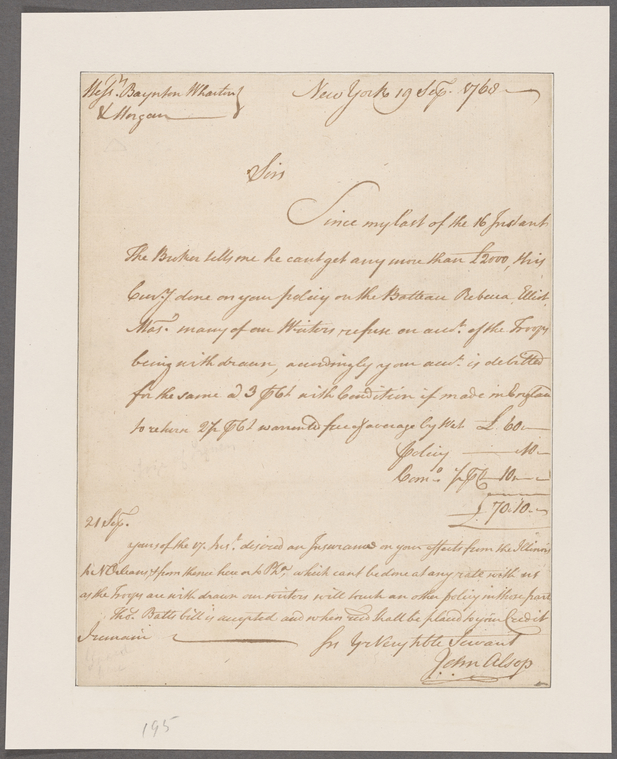 Messrs. Baynton Wharton
& Morgan
New York 19 Sep. 1768
Sirs
Since my last of the 16 Instant
The Broker tells me he cant get any more than £2000, this
Curry. done on your policy on the Batteau Rebecca, Elliot
Mas.r many of our Writers refuse on acct. of the Troops
being withdrawn, accordingly your acct. is debitted
for the same a 3 P Ct with Condition if made in
to return 2 P Ct warranted free of average by Wet £ 60
Policy 10
Com.n P Ct 10
£ 70.10
21 Sep.
yours of the 17. Inst. desired an Insurance on your effects from the Illinois
to N Orleans, & from thence here or to Pha. which cant be done at any rate with us
as the Troops are withdrawn our writers will touch an other policy in those parts
Thos. Batts bill is accepted and when recd shall be placed to your Credit
I remain Sirs Yr Very Hble Servant
John Alsop
195